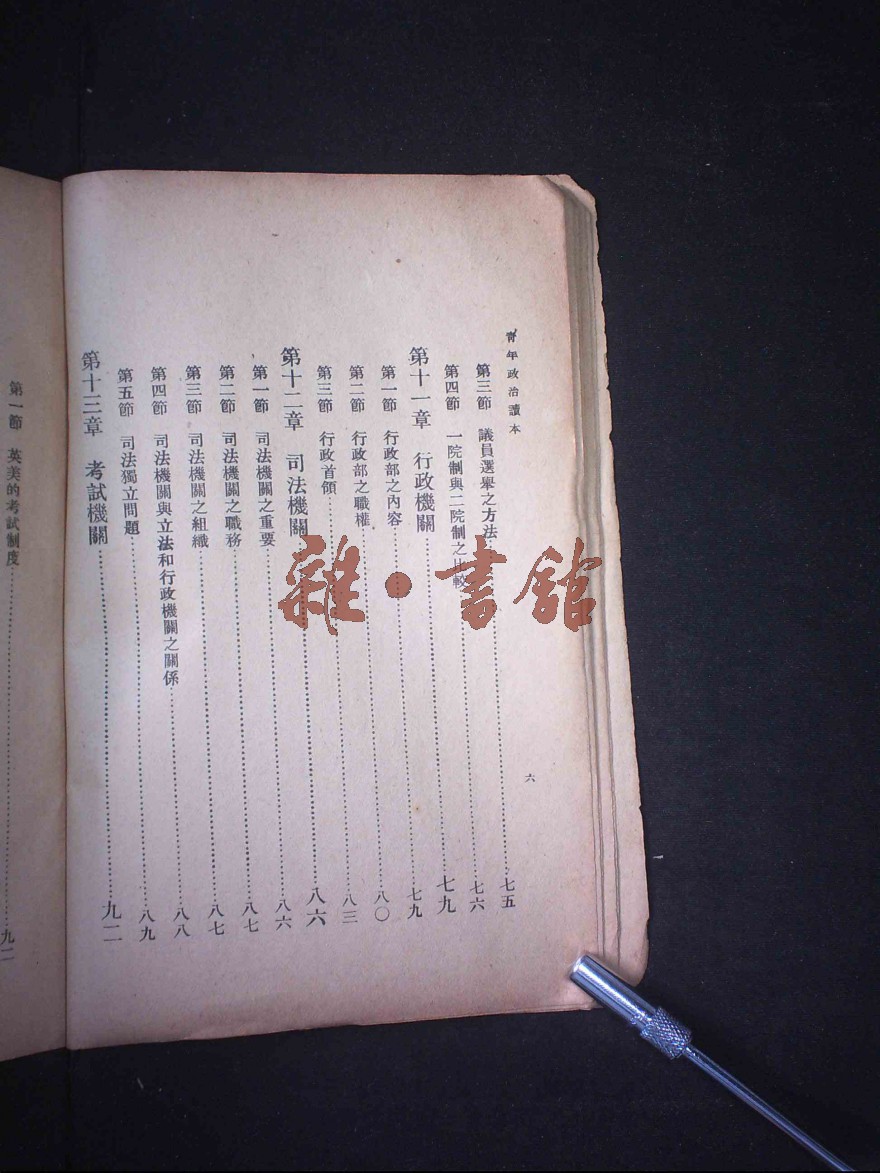 青年政治讀本
六
第三節 議員選舉之方法…………七五
第四節 一院制與二院制之比較…………七六
第十一章 行政機關…………七九
第一節 行政部之內容…………七九
第二節 行政部之職權…………八〇
第三節 行政首領…………八三
第十二章 司法機關…………八六
第一節 司法機關之重要…………八六
第二節 司法機關之職務…………八七
第三節 司法機關之組織…………八七
第四節 司法機關與立法和行政機關之關係…………八八
第五節 司法獨立問題…………八九
第十三章 考試機關…………九二
第一節 英美的考試制度…………九二
雜·書館